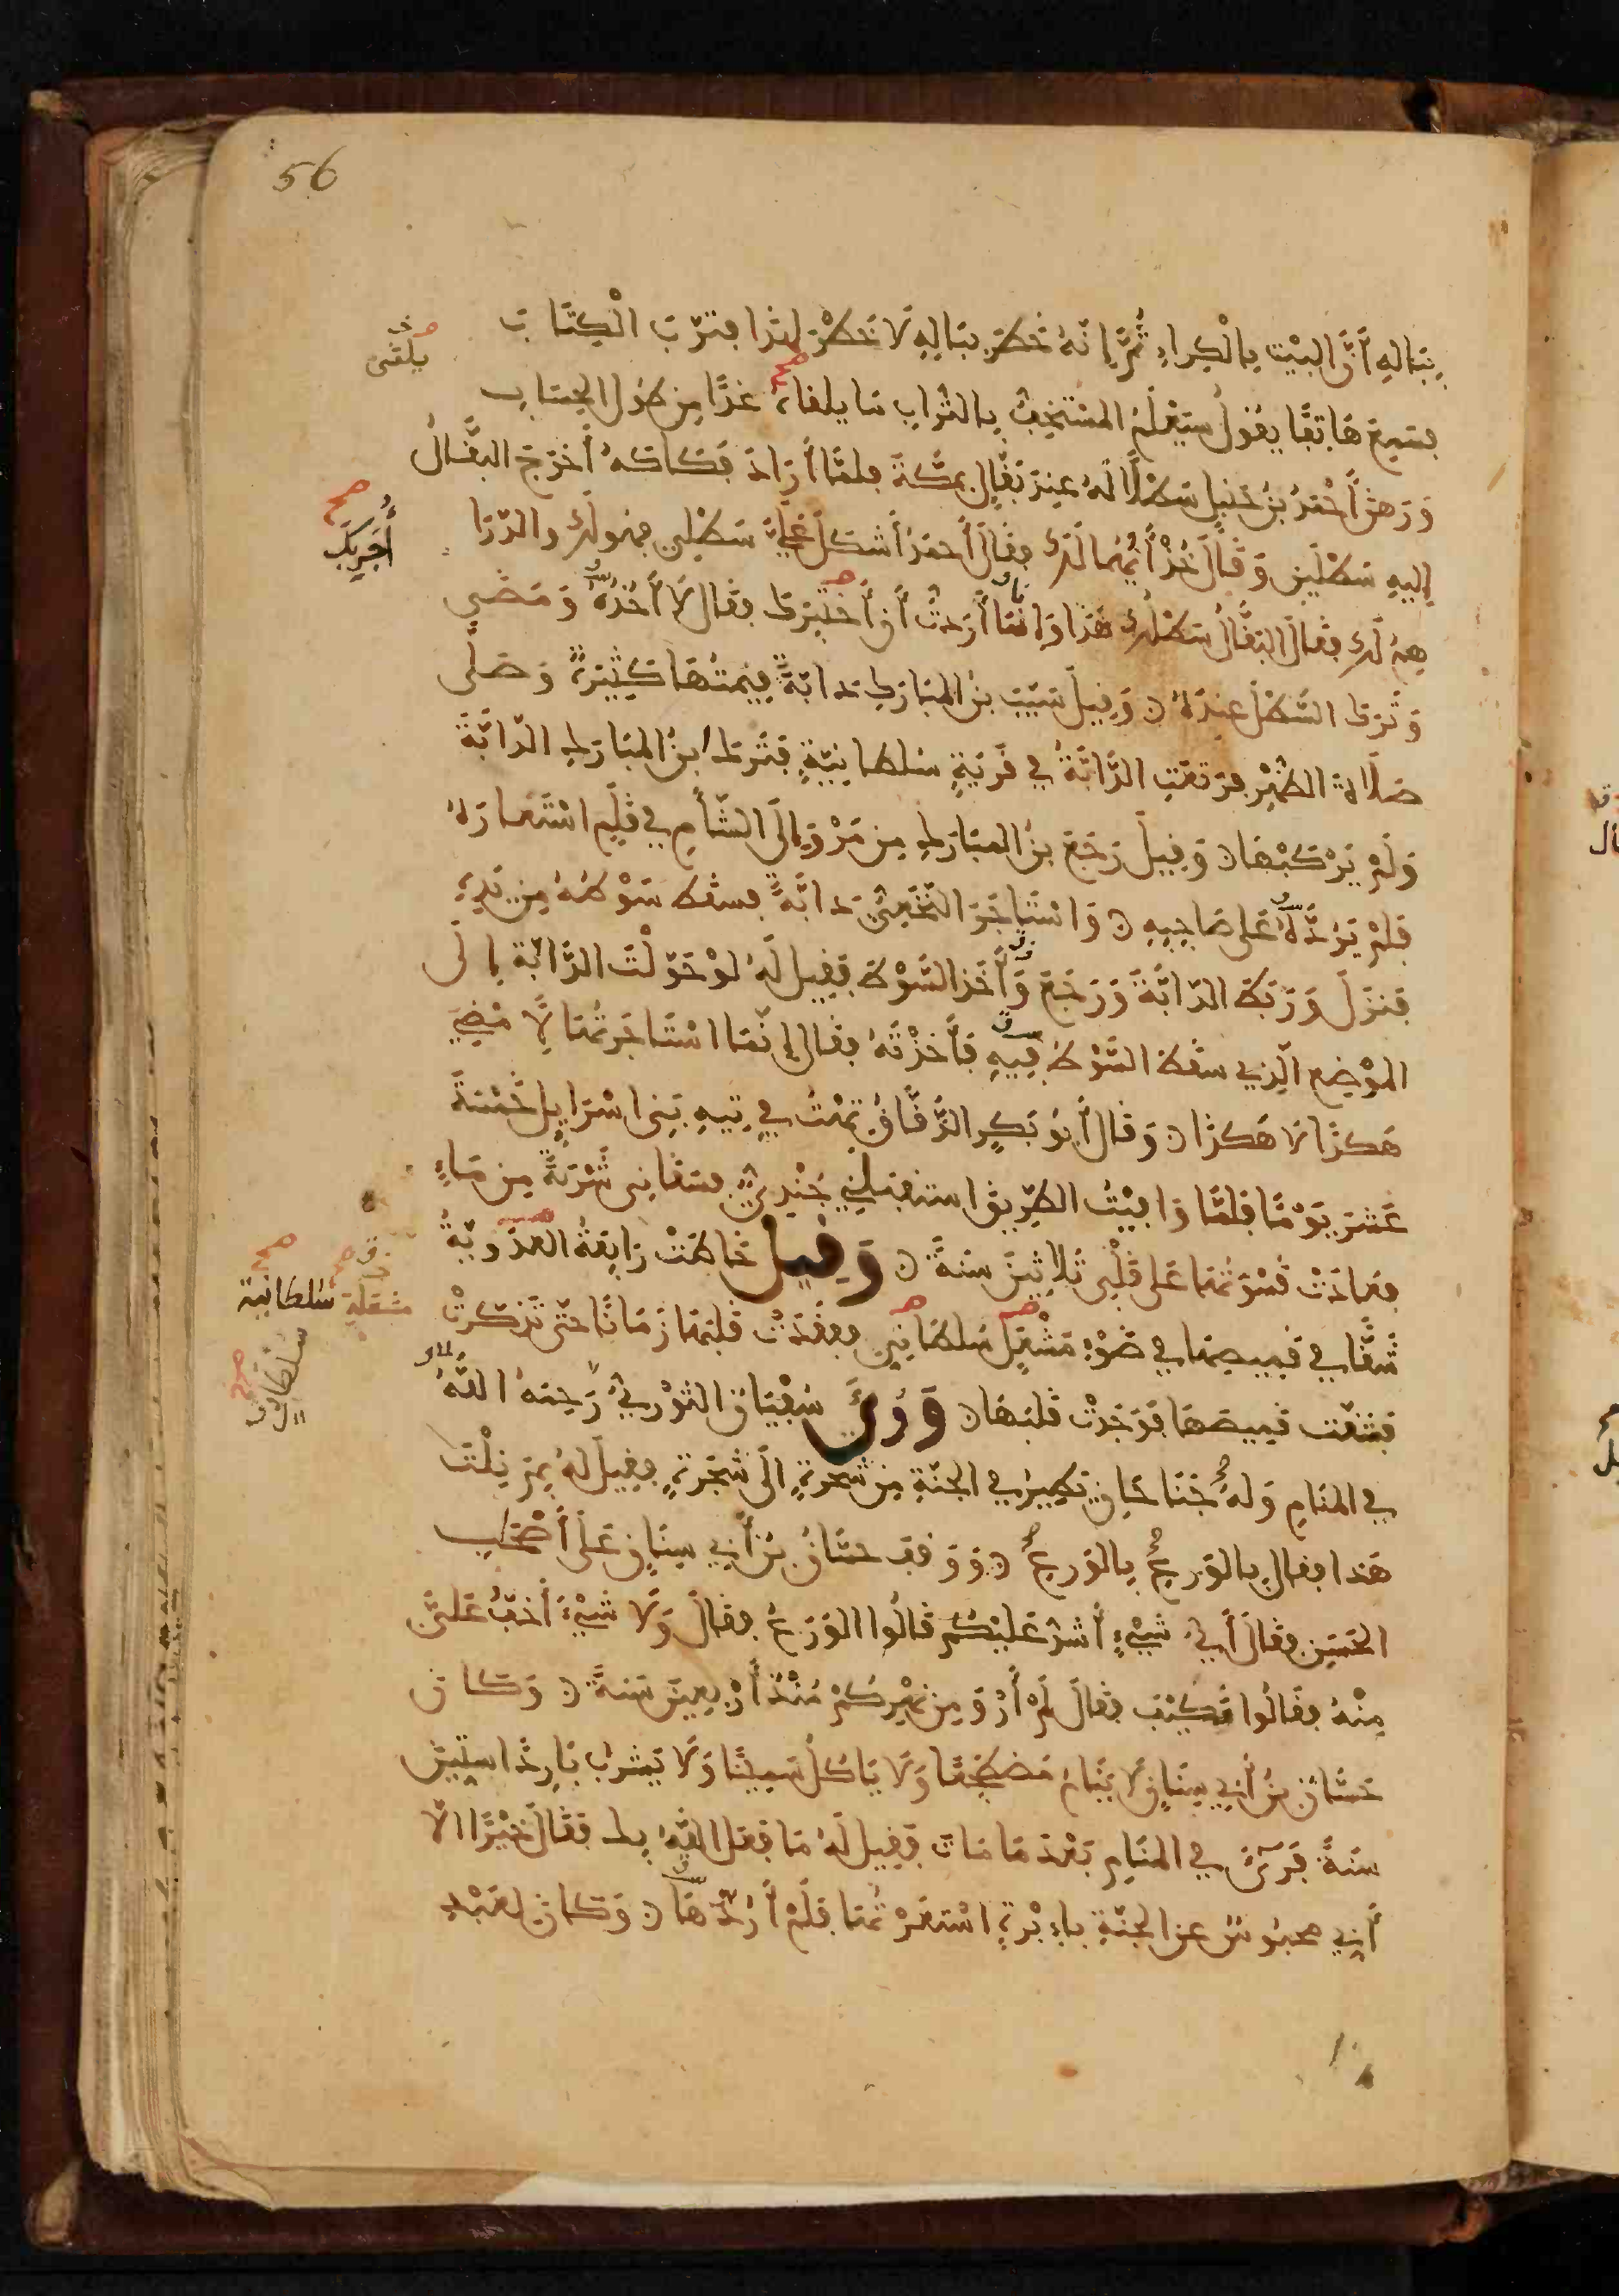 56
بباله أنّ البيت بالكراء ثمّ إنّه خطر بباله لا خطر لهذا فترّب الكتاب
فسمع هاتفا يقول سيعلم المستخفّ بالتراب ما يلقاه غدًا من طول الحساب
يلقى
ورهن أحمد بن حنبل سطلًا له عند بقّال بمكّة فلمّا أراد فكاكه أخرج البقّال
إليه سطلين وقال خذ أيّهما لك فقال أحمد أشكل عليّ سطلي فهو لك والدّرا
أجربك
هم لك فقال البقّال سطلك هذا وإنما أردت أن أختبرك فقال لا آخذه ومضى
وترك السّطل عنده وقيل سيّب بن المبارك دابّةً قيمتها كثيرة وصلّى
صلاة الظهر فرتعت الدّابّة في قرية سلطانيّة فترك ابن المبارك الدّابّة
ولم يركبها وقيل رجع بن المبارك من مرو إلى الشّأم في قلم استعاره
فلم يردّه على صاحبه واستاجر النّخعيّ دابّةً فسقط سوطه من يده
فنزل وربط الدّابّة ورجع وأخذ السّوط فقيل له لو حوّلت الدّابّة إلى
الموضع الّذي سقط السّوط فيه فأخذته فقال إنّما استاجرتها لأمضي
هكذا لا هكذا وقال أبو بكر الدّقّاق تهت في تيه بني اسراييل خمسة
عشر يومًا فلمّا وافيت الطريق استقبلني جنديّ فسقاني شربةً من ماء
فعادت قسوتها على قلبي ثلاثين سنةً وقيل خاطت رابعة العدويّة
شقّا في قميصها في ضوء مشعل سلطاني ففقدت قلبها زمانًا حتّى تذكّرت
مشعلة سلطانية
سلطان
فشقّت قميصها فوجدت قلبها ورئي سفيان الثوريّ رحمه اللّه
في المنام وله جناحان يطير في الجنّة من شجرة إلى شجرة فقيل له بم نلت
هذا فقال بالورع بالورع ووقف حسّان بن أبي سنان على أصحاب
الحسن فقال أيّ شيء أشدّ عليكم قالوا الورع فقال ولا شيء أخفّ عليّ
منه فقالوا فكيف فقال لم أرو من نهركم منذ أربعين سنةً وكان
حسّان بن أبي سنان لا ينام مضطجعًا ولا ياكل سمينًا ولا يشرب باردًا ستين
سنةً فرئي في المنام بعد ما مات فقيل له ما فعل اللّه بك فقال خيرًا الّا
أني محبوس عن الجنّة بإبرة استعرتها فلم أردّها وكان لعبد